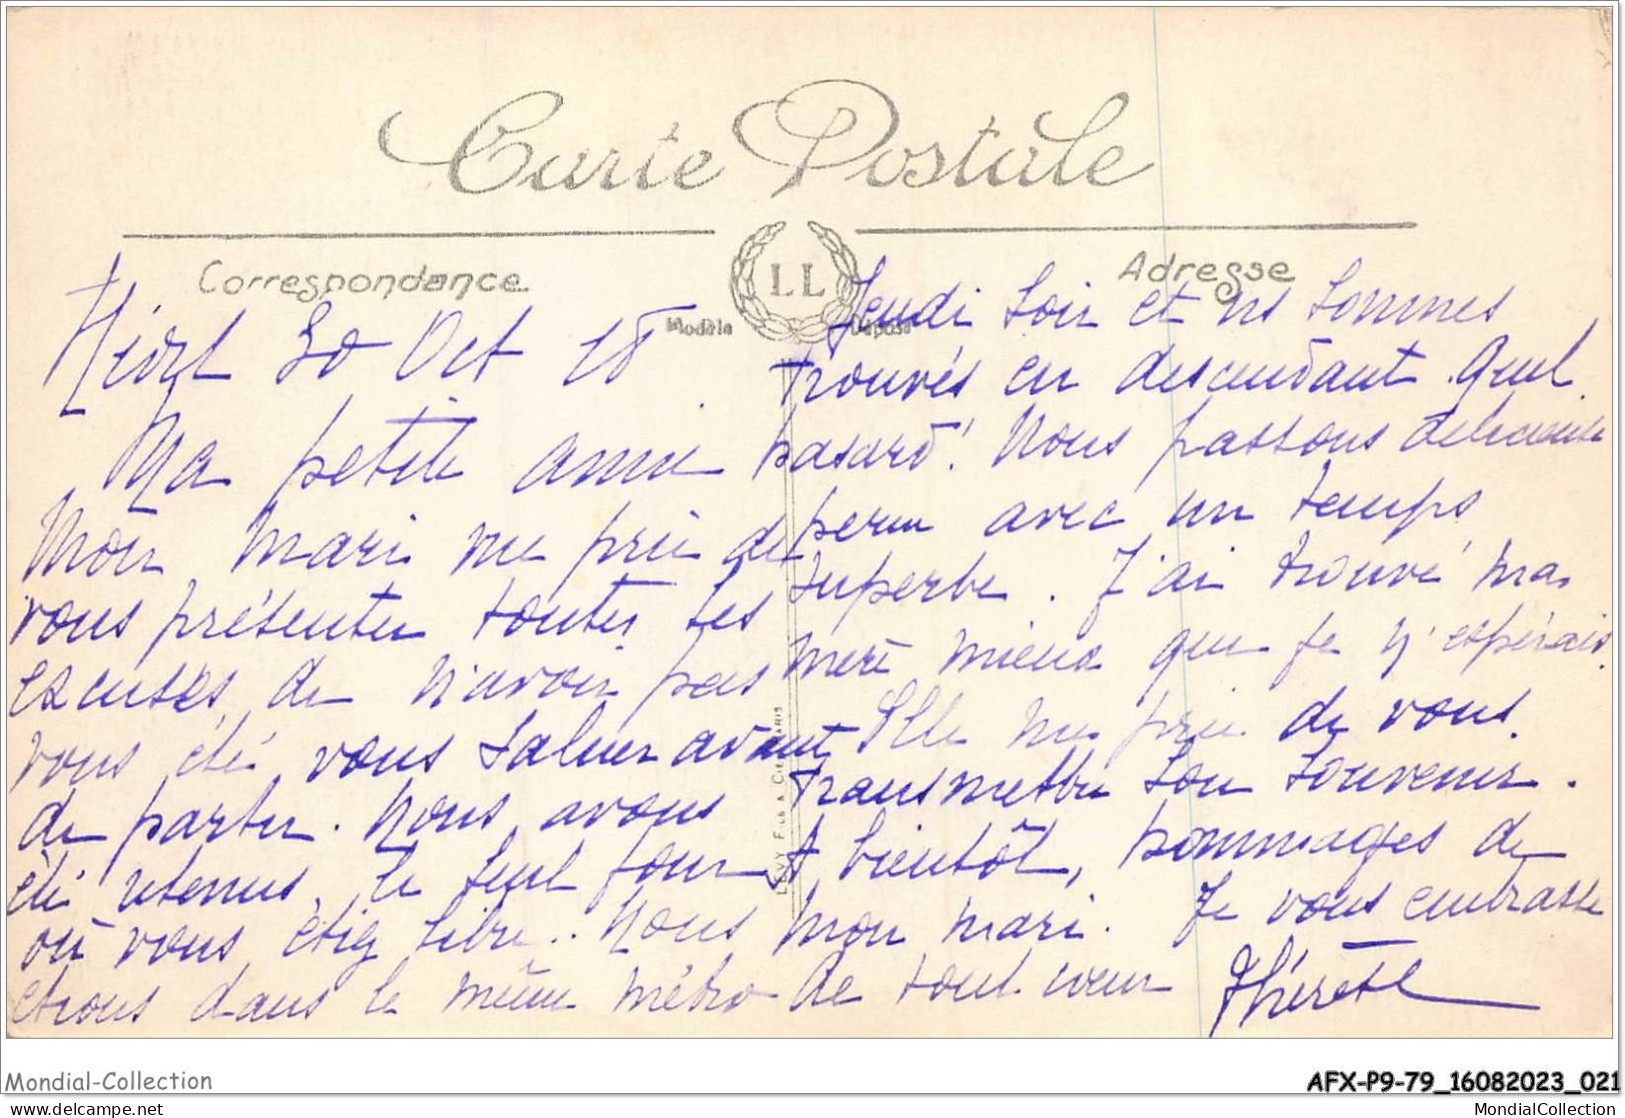 Carte Postale
Correspondance
LL
Modèle Déposé
Adresse
LEVY Fils & Cie PARIS
Niort 30 Oct 18
Ma petite amie
Mon mari me prie de
vous présenter toutes ses
excuses de n'avoir pas
vous été vous saluer avant
de partir. Nous avons
été retenus, le seul jour
où vous étiez libre.. Nous
étions dans le même métro
Jeudi soir et ns sommes
trouvés en descendant. Quel
hasard! Nous passons délicieuse
perm avec un temps
superbe. J'ai trouvé ma
mère mieux que je n'espérais.
Elle me prie de vous
transmettre son souvenir.
A bientôt, hommages de
mon mari. Je vous embrasse
de tout cœur Thérèse
Mondial-Collection
AFX-P9-79_16082023_021
delcampe.net
MondialCollection